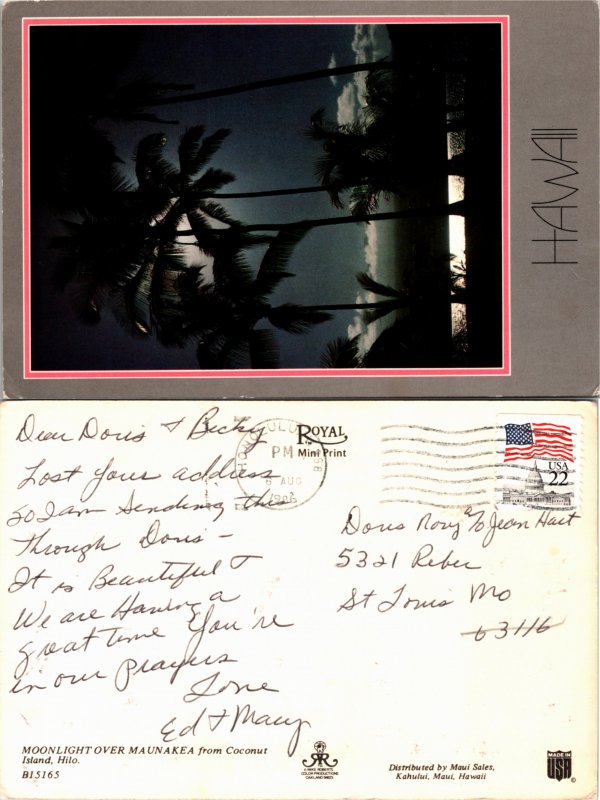 HAWAII
Dear Doris & Becky
Lost your address
so I am sending this
Through Doris -
It is Beautiful &
We are Having a
great time You're
in our prayers
Love
Ed & Mary
HONOLULU
PM
6 AUG
1986
ROYAL
TM
Mini Print
USA
22
Doris Rony % Jean Hart
5321 Reber
St Louis Mo
63116
MOONLIGHT OVER MAUNAKEA from Coconut
Island, Hilo.
B15165
© MIKE ROBERTS
COLOR PRODUCTIONS
OAKLAND 94623
Distributed by Maui Sales,
Kahului, Maui, Hawaii
MADE IN
USA
©